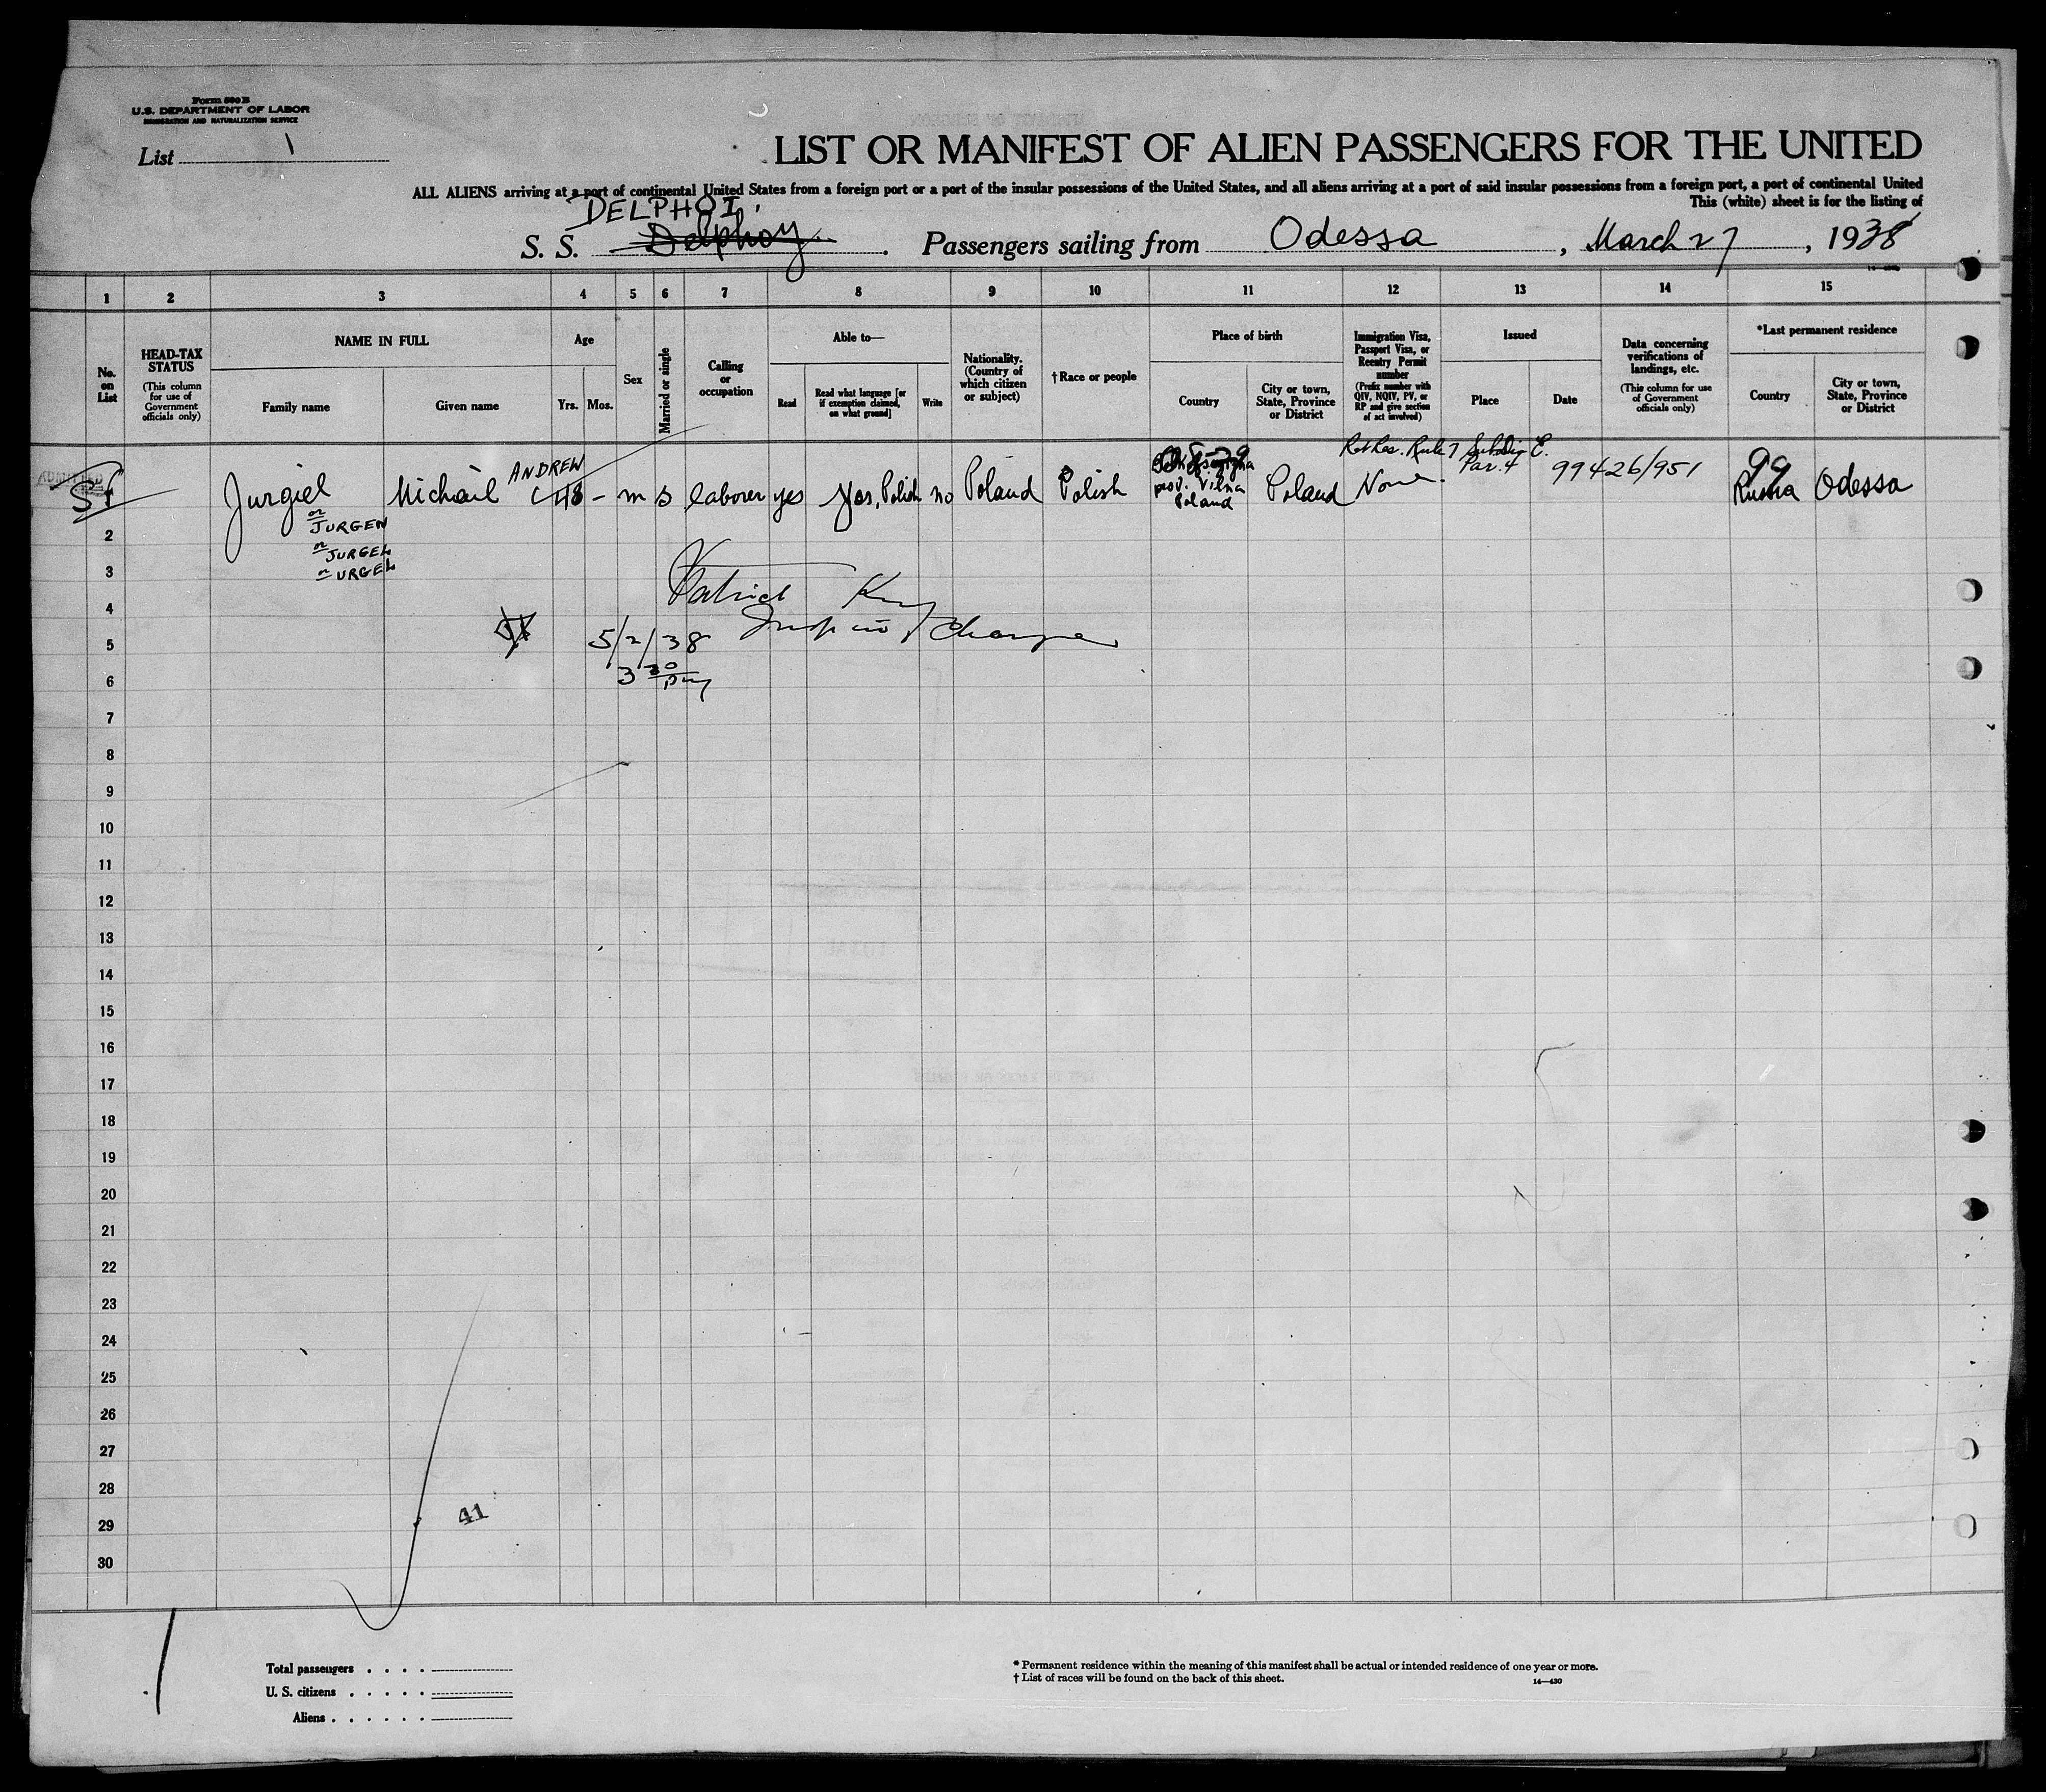 Form 500 B
U.S. DEPARTMENT OF LABOR
IMMIGRATION AND NATURALIZATION SERVICE
List 1
LIST OR MANIFEST OF ALIEN PASSENGERS FOR THE UNITED
ALL ALIENS arriving at a port of continental United States from a foreign port or a port of the insular possessions of the United States, and all aliens arriving at a port of said insular possessions from a foreign port, a port of continental United
This (white) sheet is for the listing of
DELPHOI.
S. S. Delphoy. Passengers sailing from Odessa, March 27, 1938
1 2 3 4 5 6 7 8 9 10 11 12 13 14 15
No. on List
HEAD-TAX STATUS
(This column for use of Government officials only)
NAME IN FULL
Family name
Given name
Age
Yrs. Mos.
Sex
Married or single
Calling or occupation
Able to—
Read
Read what language [or if exemption claimed, on what ground]
Write
Nationality. (Country of which citizen or subject)
†Race or people
Place of birth
Country
City or town, State, Province or District
Immigration Visa, Passport Visa, or Reentry Permit number
(Prefix number with QIV, NQIV, PV, or RP and give section of act involved)
Issued
Place
Date
Data concerning verifications of landings, etc.
(This column for use of Government officials only)
*Last permanent residence
Country
City or town, State, Province or District
Rule 7 Subdiv E.
Par. 4
ADMITTED
Jurgiel Michail ANDREW 48 - m s laborer yes yes, Polish no Poland Polish
prov. Vilna
Poland
Poland None. 99426/951 99
Russia Odessa
or JURGEN
or JURGEL
or URGEL
Patrick
5/2/38
3 30 pm
2
3
4
5
6
7
8
9
10
11
12
13
14
15
16
17
18
19
20
21
22
23
24
25
26
27
28
29
30
41
Total passengers . . . .
U. S. citizens . . . . .
Aliens . . . . . .
* Permanent residence within the meaning of this manifest shall be actual or intended residence of one year or more.
† List of races will be found on the back of this sheet.
14—430